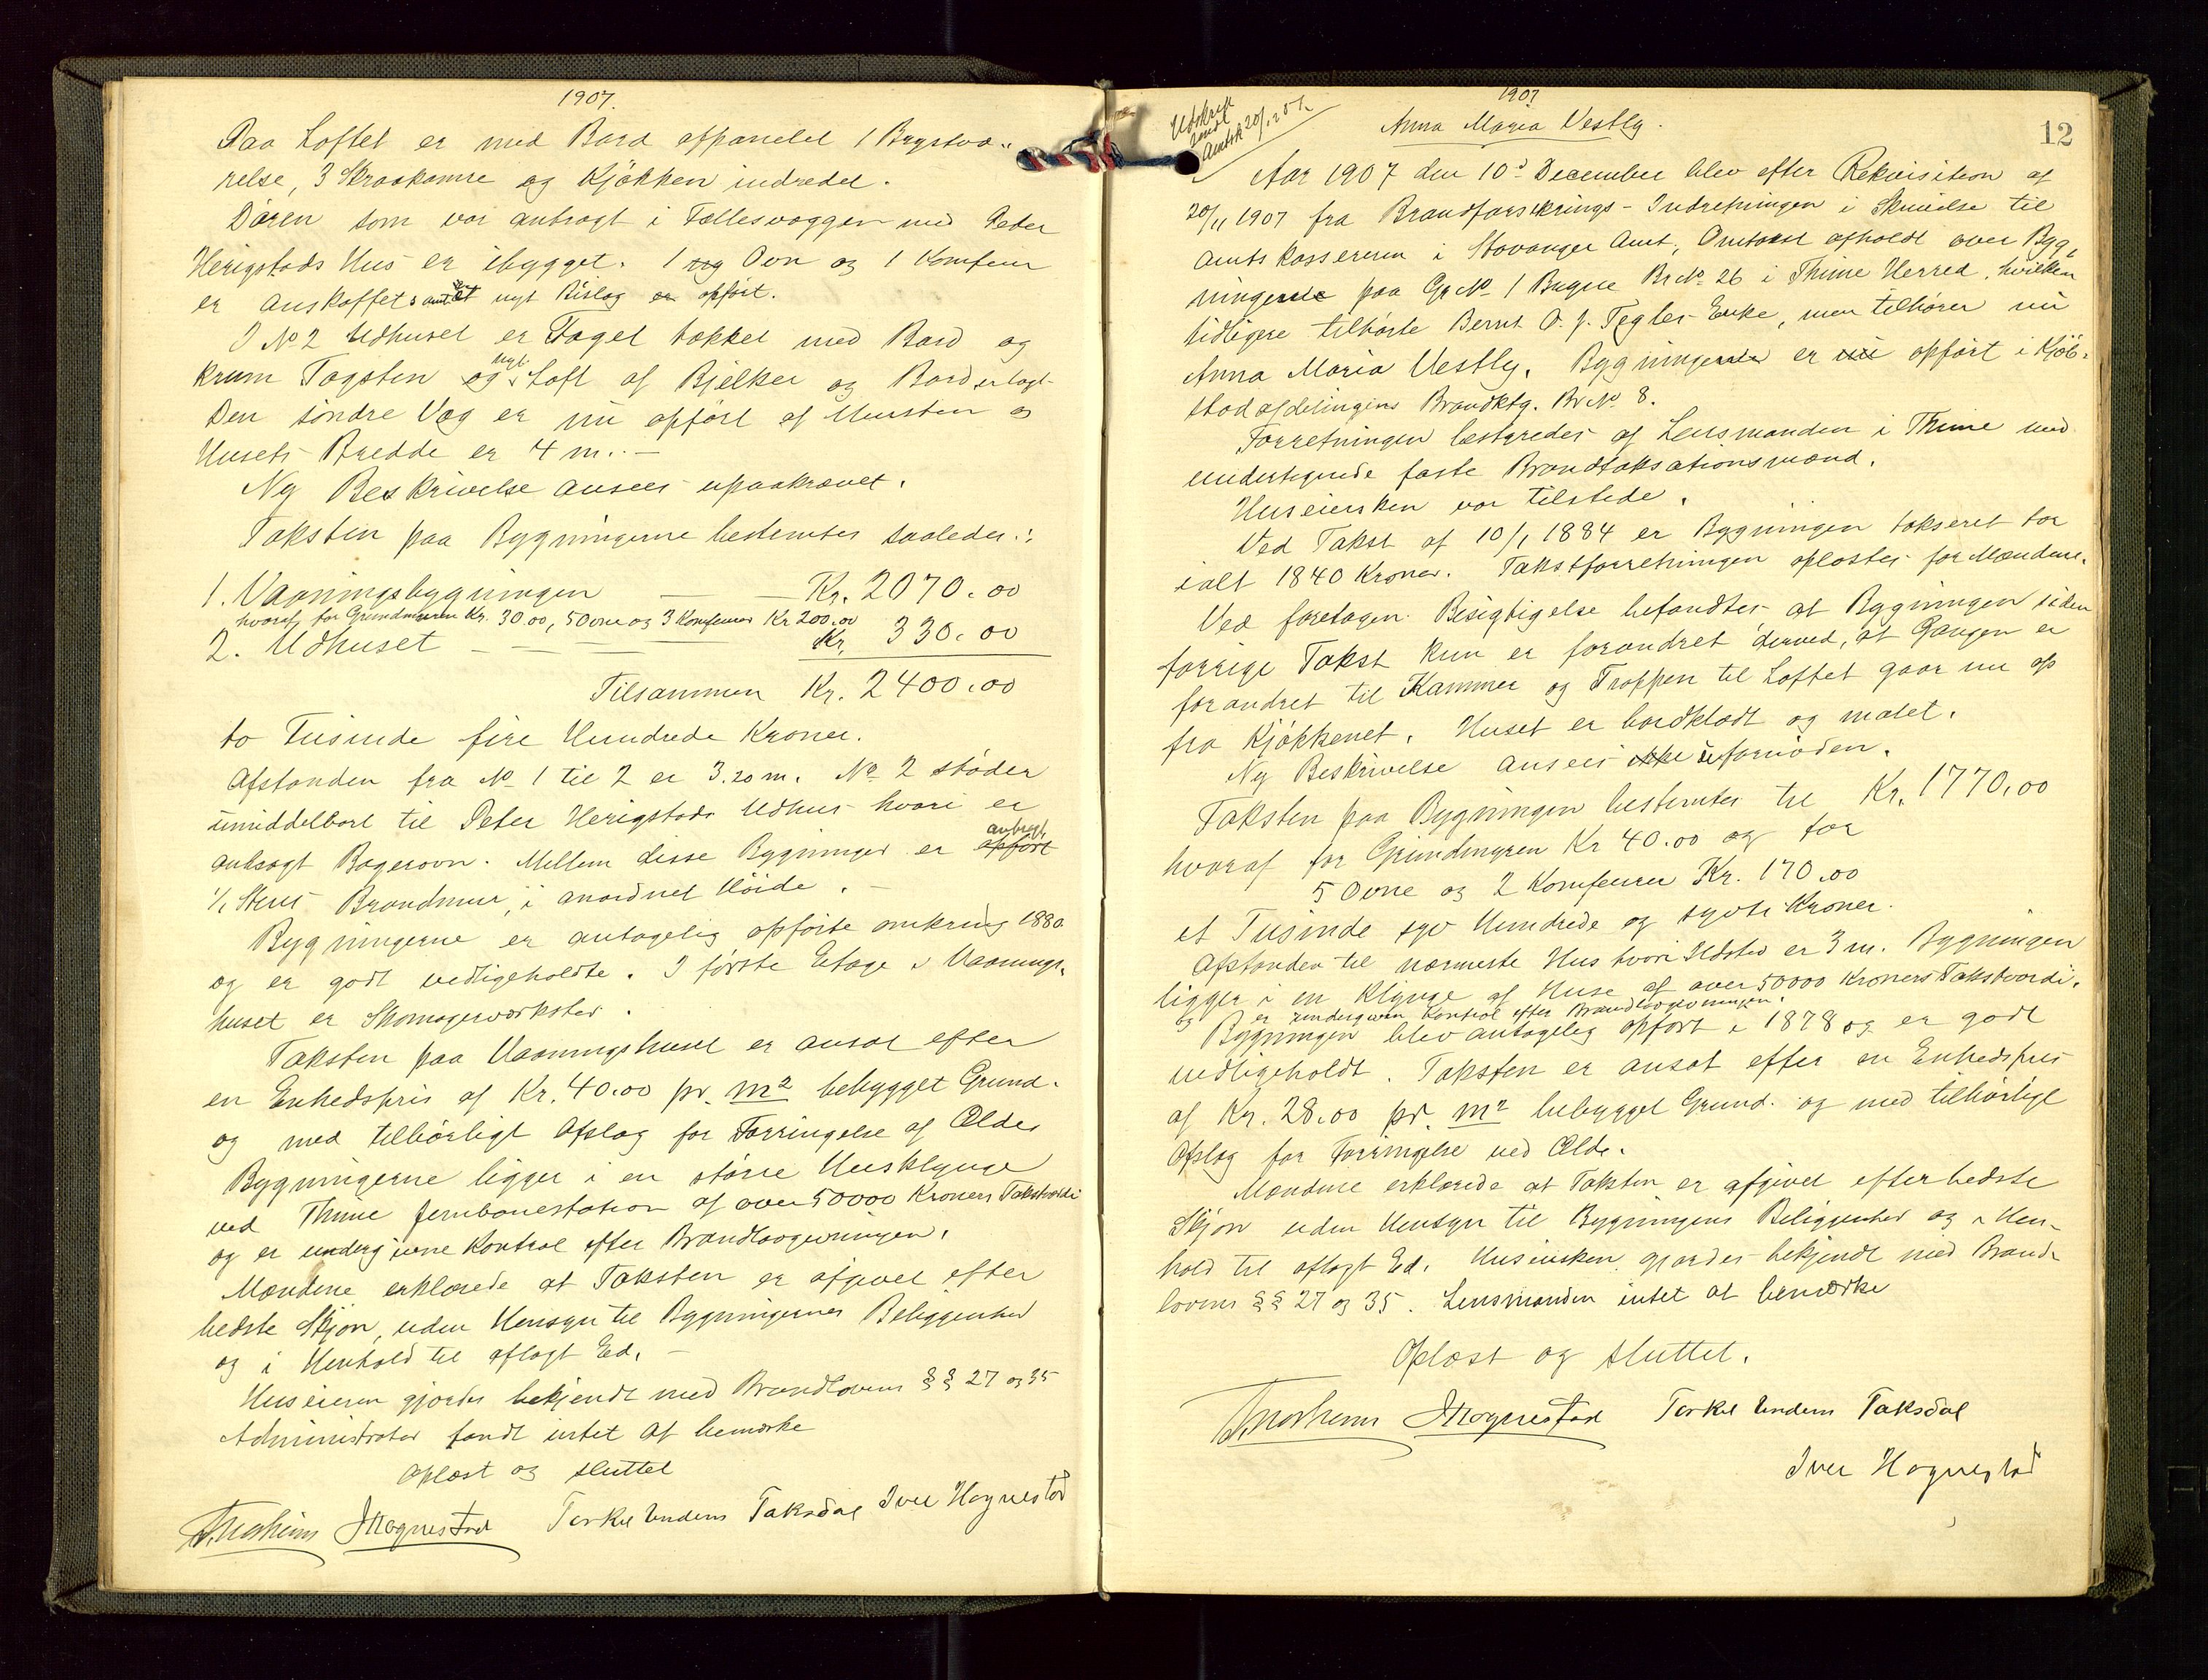 1907.
Paa Loftet er med Bord afpanelet 1 Brystvæ„
relse, 3 Skraakamre og Kjökken indredet.
Dören som var anbragt i Fællesvæggen med Peder
Herigstads Hus er ibygget. 1 ny Ovn og 1 Komfur
er anskaffet samt et nyt Bislag er opfört.
I No 2 Udhuset er Taget tækket med Bord og
krum Tagsten og nyt Loft af Bjelker og Bord er lagt.
Den söndre Væg er nu opfört af Mursten og
Husets Bredde er 4 m. —
Ny Beskrivelse ansees upaakrævet.
Taksten paa Bygningerne bestemtes saaledes:
1. Vaaningsbygningen — — Kr. 2070.00
hvoraf for Grundmuren Kr. 30.00, 5 Ovne og 3 Komfurer Kr 200.00
2. Udhuset — — — Kr. 330.00
Tilsammen Kr. 2400.00
to Tusinde fire Hundrede Kroner.
Afstanden fra No 1 til 2 er 3.20 m. No 2 stöder
umiddelbart til Peter Herigstads Udhus hvori er
anbragt Bagerovn. Mellem disse Bygninger er opfört anbragt
1/1 Stens Brandmur, i anordnet Höide. —
Bygningerne er antagelig opförte omkring 1880
og er godt vedligeholdte. I förste Etage i Vaanings-
huset er Skomagerværksted.
Taksten paa Vaaningshuset er ansat efter
en Enhedspris af Kr. 40.00 pr. m2 bebygget Grund.
og med tilbörligt Afslag for Forringelse af Ælde.
Bygningerne ligger i en större Husklynge
ved Thime Jernbanestation af over 50000 Kroners Takstværdi
og er undergivne Kontrol efter Brandlovgivningen.
Mændene erklærede at Taksten er afgivet efter
bedste Skjön, uden Hensyn til Bygningernes Beliggenhed
og i Henhold til aflagt Ed. —
Huseieren gjordes bekjendt med Brandlovens §§ 27 og 35
Administrator fandt intet at bemærke
Oplæst og sluttet
Mognestad Torkel Undem Taksdal Iver Hognestad
1907
12
Udskrift
sendt
Amtsk 20/1
Anna Maria Vestly.
Aar 1907 den 10d December blev efter Rekvisition af
20/11 1907 fra Brandforsikrings-Indretningen i Skrivelse til
Amtskassereren i Stavanger Amt, Omtaxt afholdt over Byg-
ningerne paa Gr No 1 Bryne Br No 26 i Thime Herred, hvilken
tidligere tilhörte Bernt O. J. Tegles Enke, men tilhörer nu
Anna Maria Vestly. Bygningerne er nu opfört i Kjöb-
stadafdelingens Brandktg. Br No 8.
Forretningen bestyredes af Lensmanden i Thime med
undertegnede faste Brandtaksationsmænd.
Huseiersken var tilstede.
Ved Takst af 10/1 1884 er Bygningen takseret for
ialt 1840 Kroner. Takstforretningen oplæstes for Mændene.
Ved foretagen Besigtigelse befandtes at Bygningen siden
forrige Takst kun er forandret derved, at Gangen er
forandret til Kammer og Trappen til Loftet gaar nu op
fra Kjökkenet. Huset er bordklædt og malet.
Ny Beskrivelse ansees ikke ufornöden.
Taksten paa Bygningen bestemtes til Kr. 1770.00
hvoraf for Grundmuren Kr 40.00 og for
5 Ovne og 2 Komfurer Kr. 170.00
et Tusinde syv Hundrede og sytti Kroner.
Afstanden til nærmeste Hus hvori Ildsted er 3 m. Bygningen
ligger i en Klynge af Huse af over 50000 Kroners Takstværdi.
og er undergiven Kontrol efter Brandlovgivningen.
Bygningen blev antagelig opfört i 1878 og er godt
vedligeholdt. Taksten er ansat efter en Enhedspris
af Kr. 28.00 pr. m2 bebygget Grund og med tilbörligt
Afslag for Forringelse ved Ælde.
Mændene erklærede at Taksten er afgivet efter bedste
Skjön uden Hensyn til Bygningens Beliggenhed og i Hen-
hold til aflagt Ed. Huseiersken gjordes bekjendt med Brand-
lovens §§ 27 og 35. Lensmanden intet at bemærke
Oplæst og sluttet.
Mognestad Torkel Undem Taksdal
Iver Hognestad